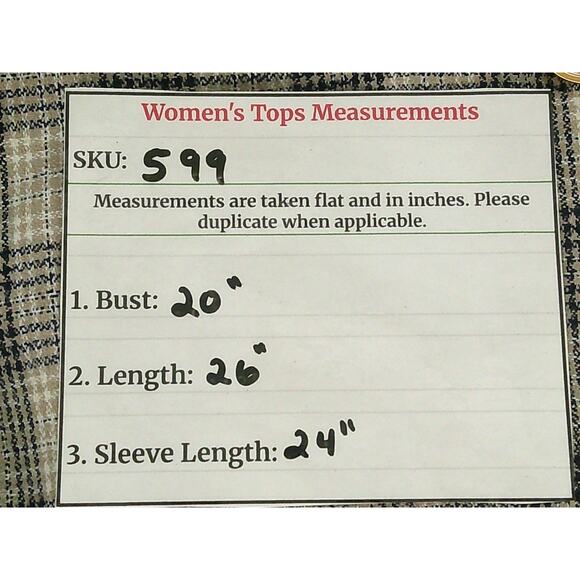 Women's Tops Measurements
SKU: 599
Measurements are taken flat and in inches. Please
duplicate when applicable.
1. Bust: 20"
2. Length: 26"
3. Sleeve Length: 24"